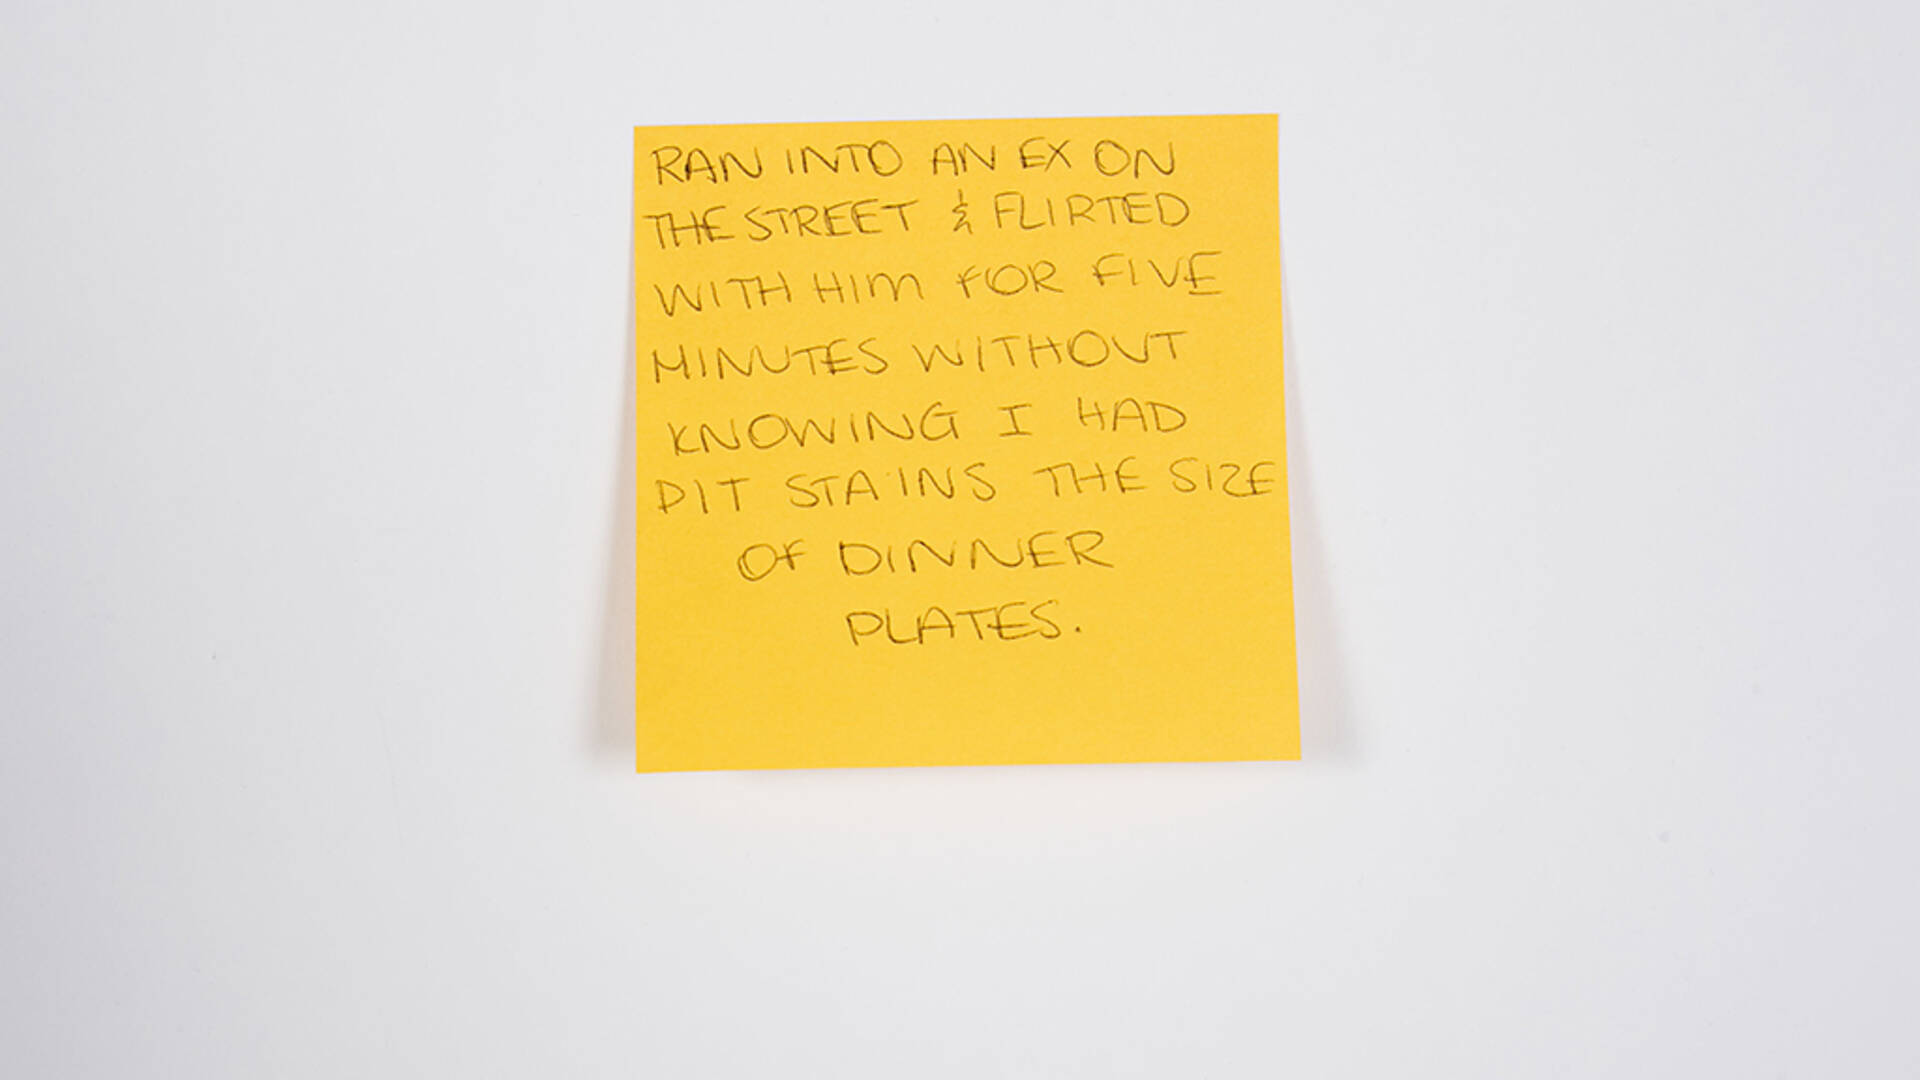 RAN INTO AN EX ON
THE STREET & FLIRTED
WITH HIM FOR FIVE
MINUTES WITHOUT
KNOWING I HAD
PIT STAINS THE SIZE
OF DINNER
PLATES.